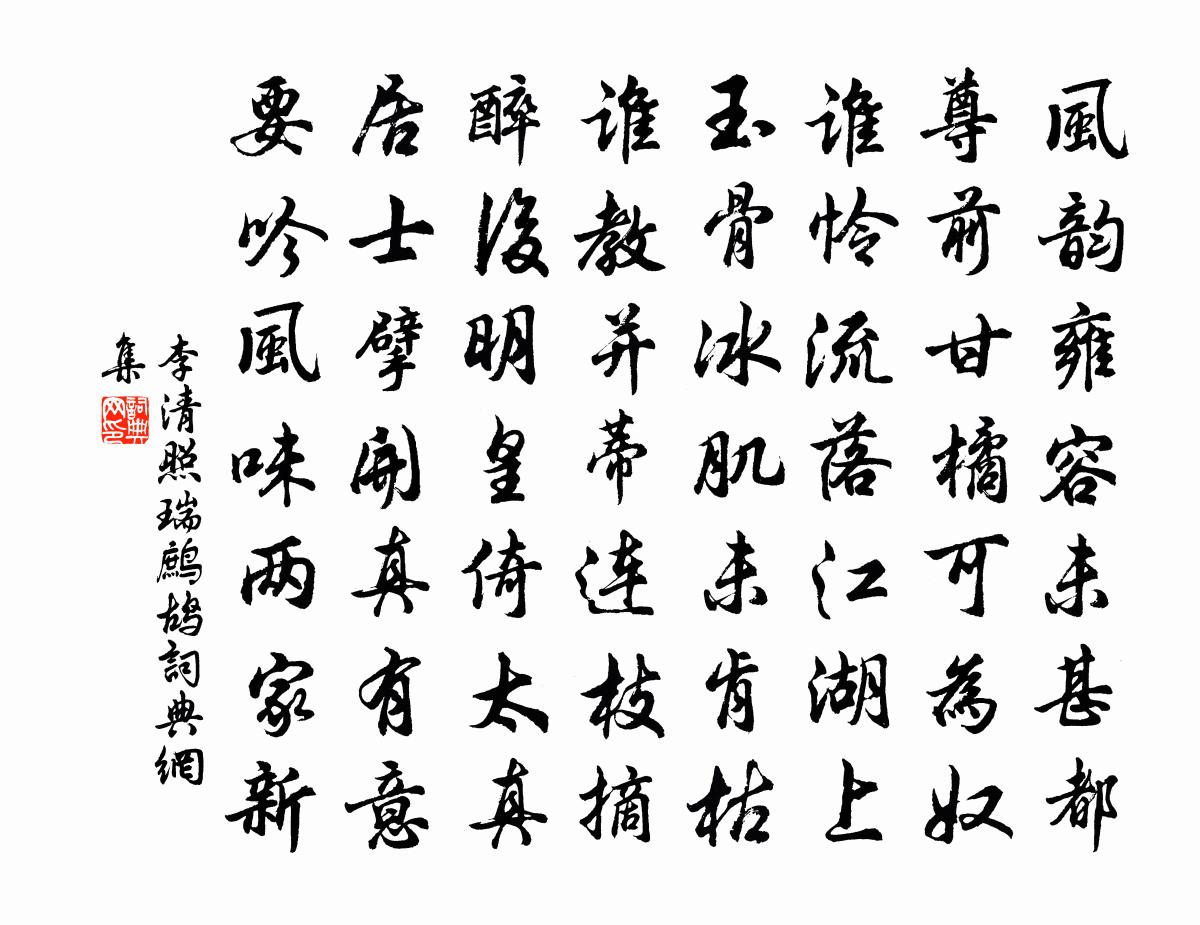 風韵雍容未甚都
尊前甘橘可為奴
谁怜流落江湖上
玉骨冰肌未肯枯
谁教并蒂連枝摘
醉後明皇倚太真
居士擘開真有意
要吟風味两家新
李清照瑞鷓鴣詞典網
集
詞典
网印